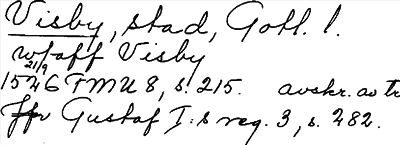 Visby, stad, Gotl. l.
utf aff Visby
21/9
1526 FMU 8, s. 215. avskr. av tr
Gustaf I:s reg. 3, s. 282.